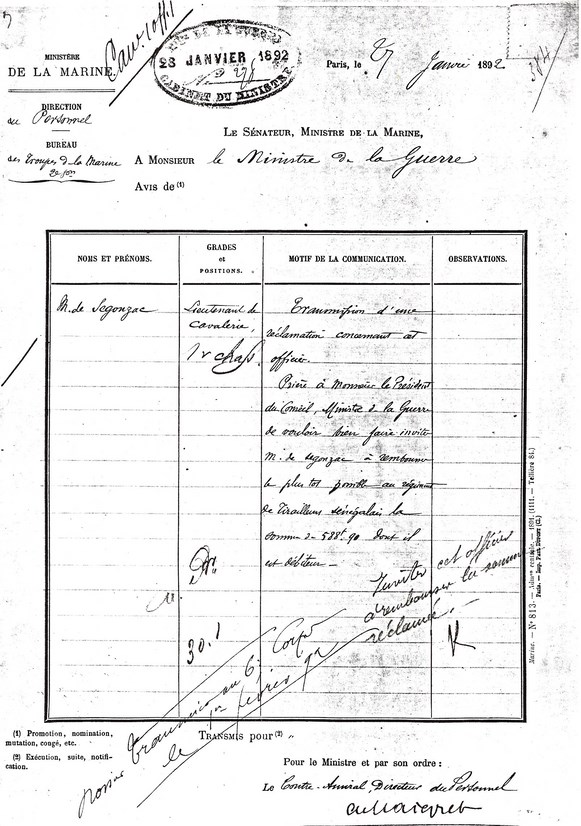 Cav. 1 off. 1
MINISTÈRE
DE LA MARINE
DE LA GUERRE
28 JANVIER 1892
CABINET DU MINISTRE
Paris, le 27 Janvier 1892
DIRECTION
du Personnel
BUREAU
des Troupes de la Marine
LE SÉNATEUR, MINISTRE DE LA MARINE,
A MONSIEUR le Ministre de la Guerre
Avis de (1)
NOMS ET PRÉNOMS.
GRADES
et
POSITIONS.
MOTIF DE LA COMMUNICATION.
OBSERVATIONS.
M. de Segonzac
Lieutenant de
Cavalerie,
1er chas.
Transmission d'une
réclamation concernant cet
officier.
Prière à Monsieur le Président
du Conseil, Ministre de la Guerre
de vouloir bien faire inviter
M. de Segonzac à rembourser
le plus tôt possible au régiment
de Tirailleurs Sénégalais la
somme de 588f.90 dont il
est débiteur.
Inviter cet officier
à rembourser la somme
réclamée.
30.1
Transmis au 6e Corps
le 1er février 92
Marine. — N° 813. — Admon centrale. — 1891. (1111. — Tellière 84.)
Paris. — Imp. PAUL DUPONT (Cl.)
(1) Promotion, nomination,
mutation, congé, etc.
(2) Exécution, suite, notifi-
cation.
TRANSMIS pour (2) "
Pour le Ministre et par son ordre :
Le Contre-Amiral Directeur du Personnel